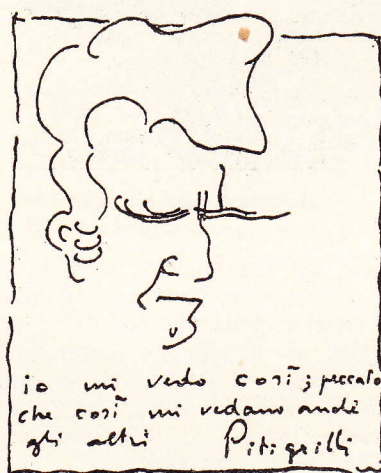 io mi vedo così; peccato
che così mi vedano anche
gli altri Pitigrilli